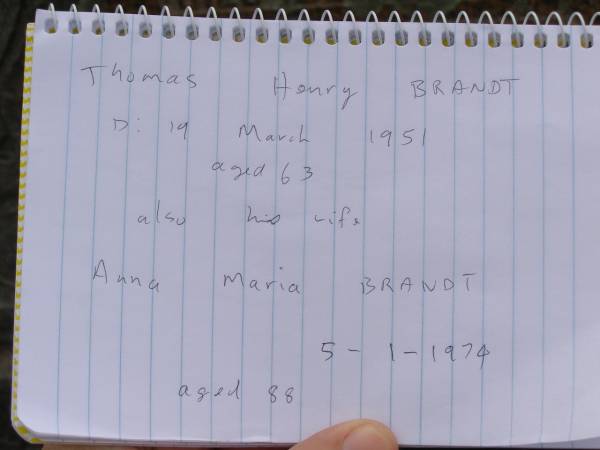 Thomas Henry BRANDT
D: 19 March 1951
aged 63
also his wife
Anna Maria BRANDT
5-1-1974
aged 88